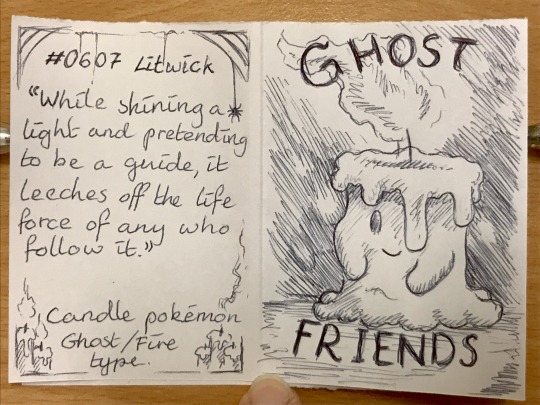 #0607 Litwick
"While shining a
light and pretending
to be a guide, it
leeches off the life
force of any who
follow it."
Candle pokémon
Ghost/Fire
type.
GHOST
FRIENDS